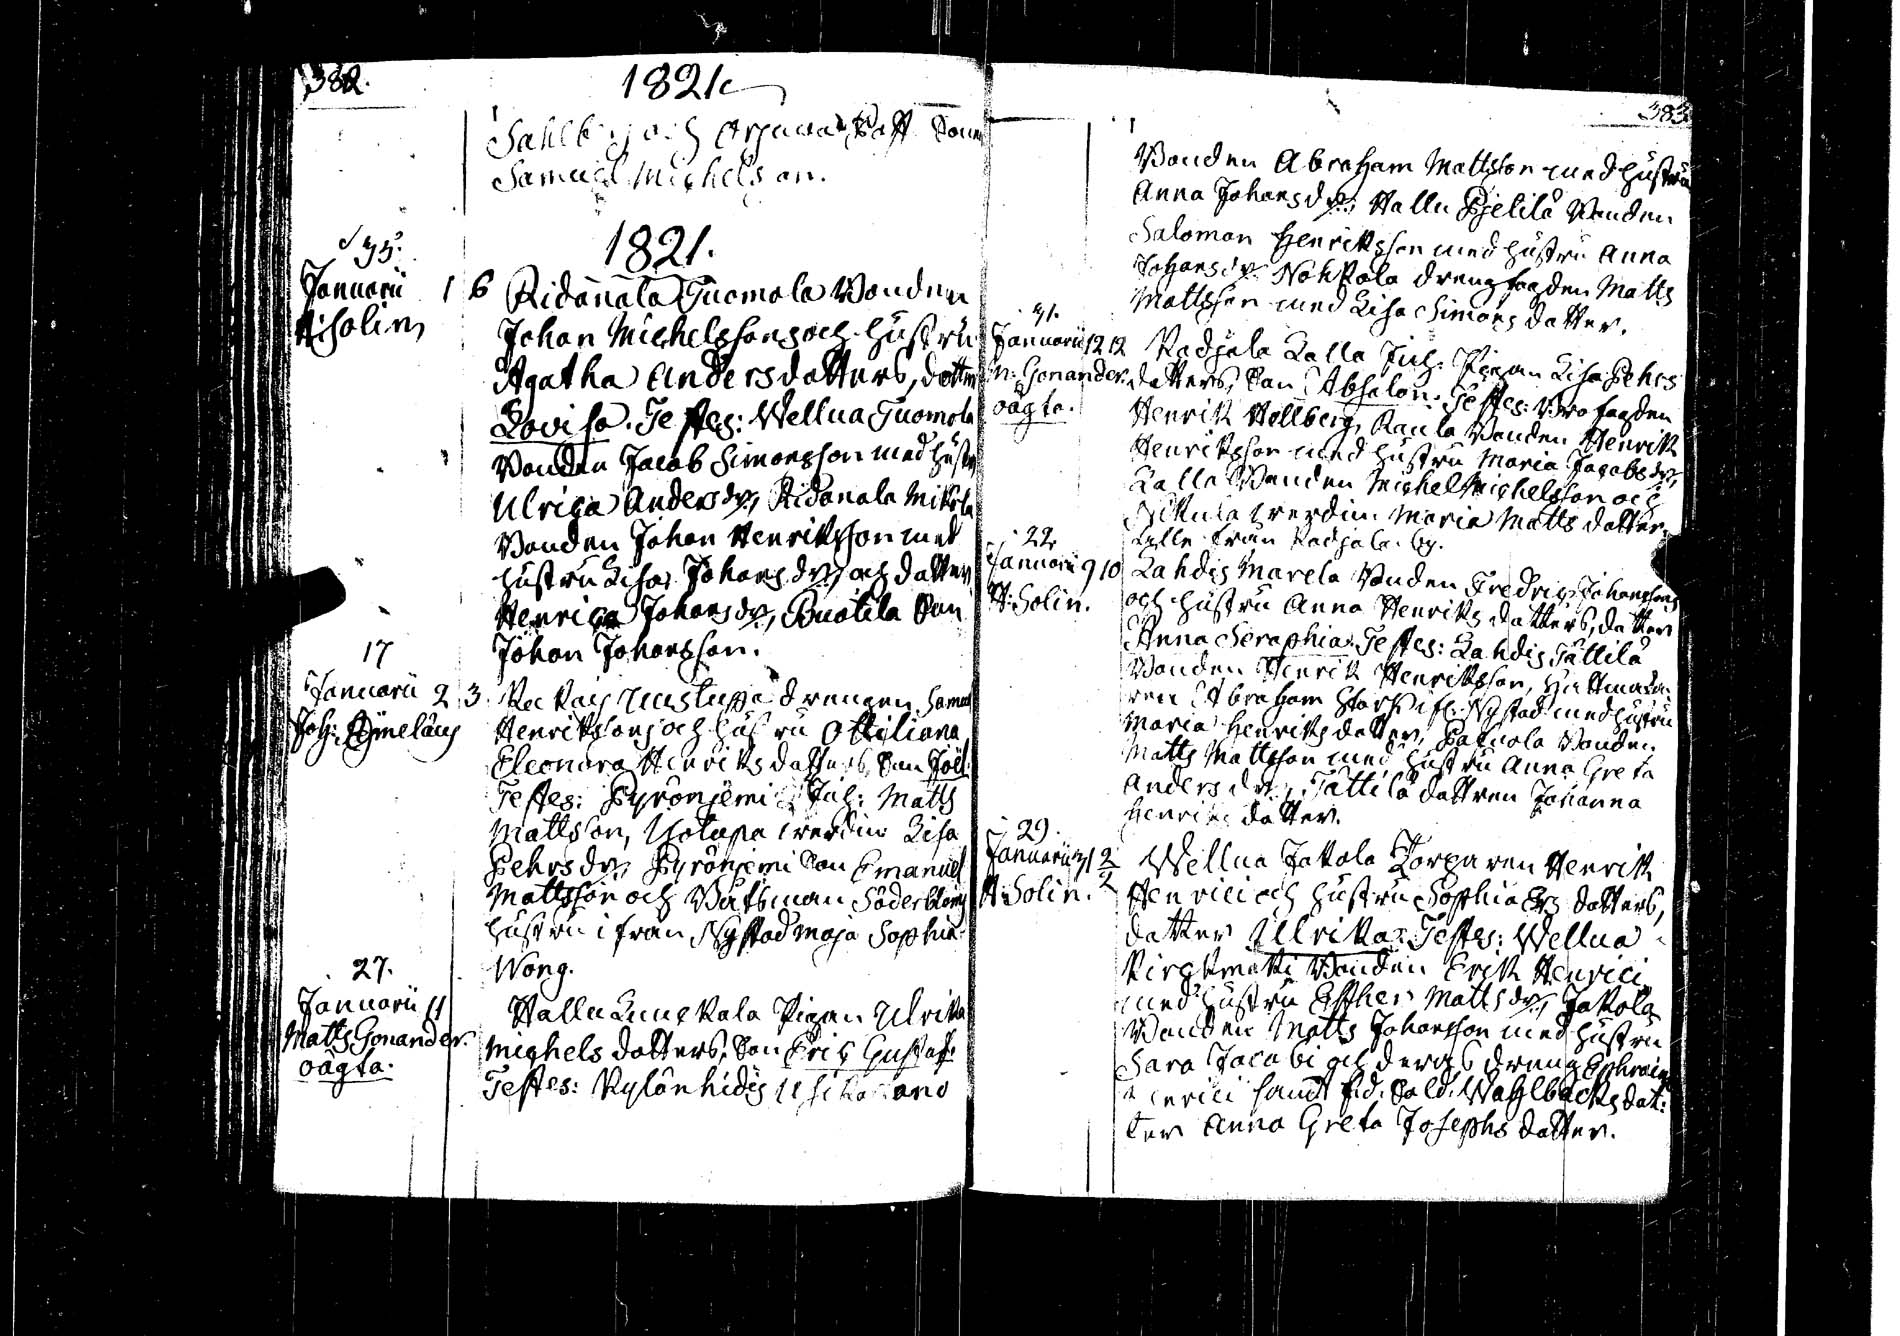 382.
1821
Sahlb och Son
Samuel Michelson.
1821.
Januarii 1 6
A: Solin
Ridanala Tuomola Bonden
Johan Michelssons och hustru
Agatha Andersdotters, dotter
Lovisa. Testes: Wellua Tuomola
Bonden Jacob Simonsson med hustru
Ulrica Andersdr, Ridanala Mikola
Bonden Johan Henriksson med
hustru Lisa Johansdr, och dotter
Henrica Johansdr, Son
Johan Johansson.
17
Januarii 2 3
Joh:
drengen Samuel
Henrikssons och hustru Ottiliana
Eleonora Henriksdotters, Son Joël.
Testes: Pyrönjemi Inh: Matts
Mattsson, werdin Lisa
Pehrsdr, Pyrönjemi Son Emanuel
Mattsson och Båtsman Söderbloms
hustru ifrån Nystad Maja Sophia
Wong.
27.
Januarii 11
Matts Gonander.
oägta.
Hallu Pigan Ulrika
Michels dotters, Son Eric Gustaf.
Testes: Kylänhidis
383
Bonden Abraham Mattsson med hustru
Anna Johansdr, Hallu Pjelilä Bonden
Salomon Henriksson med hustru Anna
Johansdr Nohkola drengfogden Matts
Mattsson med Lisa Simons dotter.
Januarii 12 12
M: Gonander.
oägta.
Radjala Lalla Inh: Pigan Lisa Pehrs
dotters, Son Absalon. Testes: Brofogden
Henrik Hellberg, Raula Bonden Henrik
Henriksson med hustru Maria Jacobsdr,
Lalla Bonden Michel Michelsson och
werdin Maria Matts dotter,
från Radjala by.
22.
Januarii 9 10
A: Solin.
Lahdis Marela Bonden Fredric Johanssons
och hustru Anna Henriks dotters, dotter
Anna Seraphia. Testes: Lahdis Tättilä
Bonden Henrik Henriksson, Hattmaka-
ren Abraham ifr: Nystad med hustru
Maria Henriks dotter, Bonden
Matts Mattsson med hustru Anna Greta
Anders dr, Tättilä dottren Johanna
Henriks dotter.
29.
Januarii 31 2/2
A: Solin.
Wellua Jakola Torparen Henrik
Henrici och hustru Sophia Ers dotters,
dotter Ulrika. Testes: Wellua
Bonden Erik Henrici
med hustru Esther Mattsdr, Jakola
Bonden Matts Johansson med hustru
Sara Jacobi och deras dreng Ephraim
Henrici samt fd: Sold: Wahlbäcks dot:
ter Anna Greta Josephs dotter.